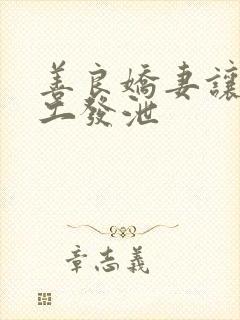 善良嬌妻讓
工發泄
章志義